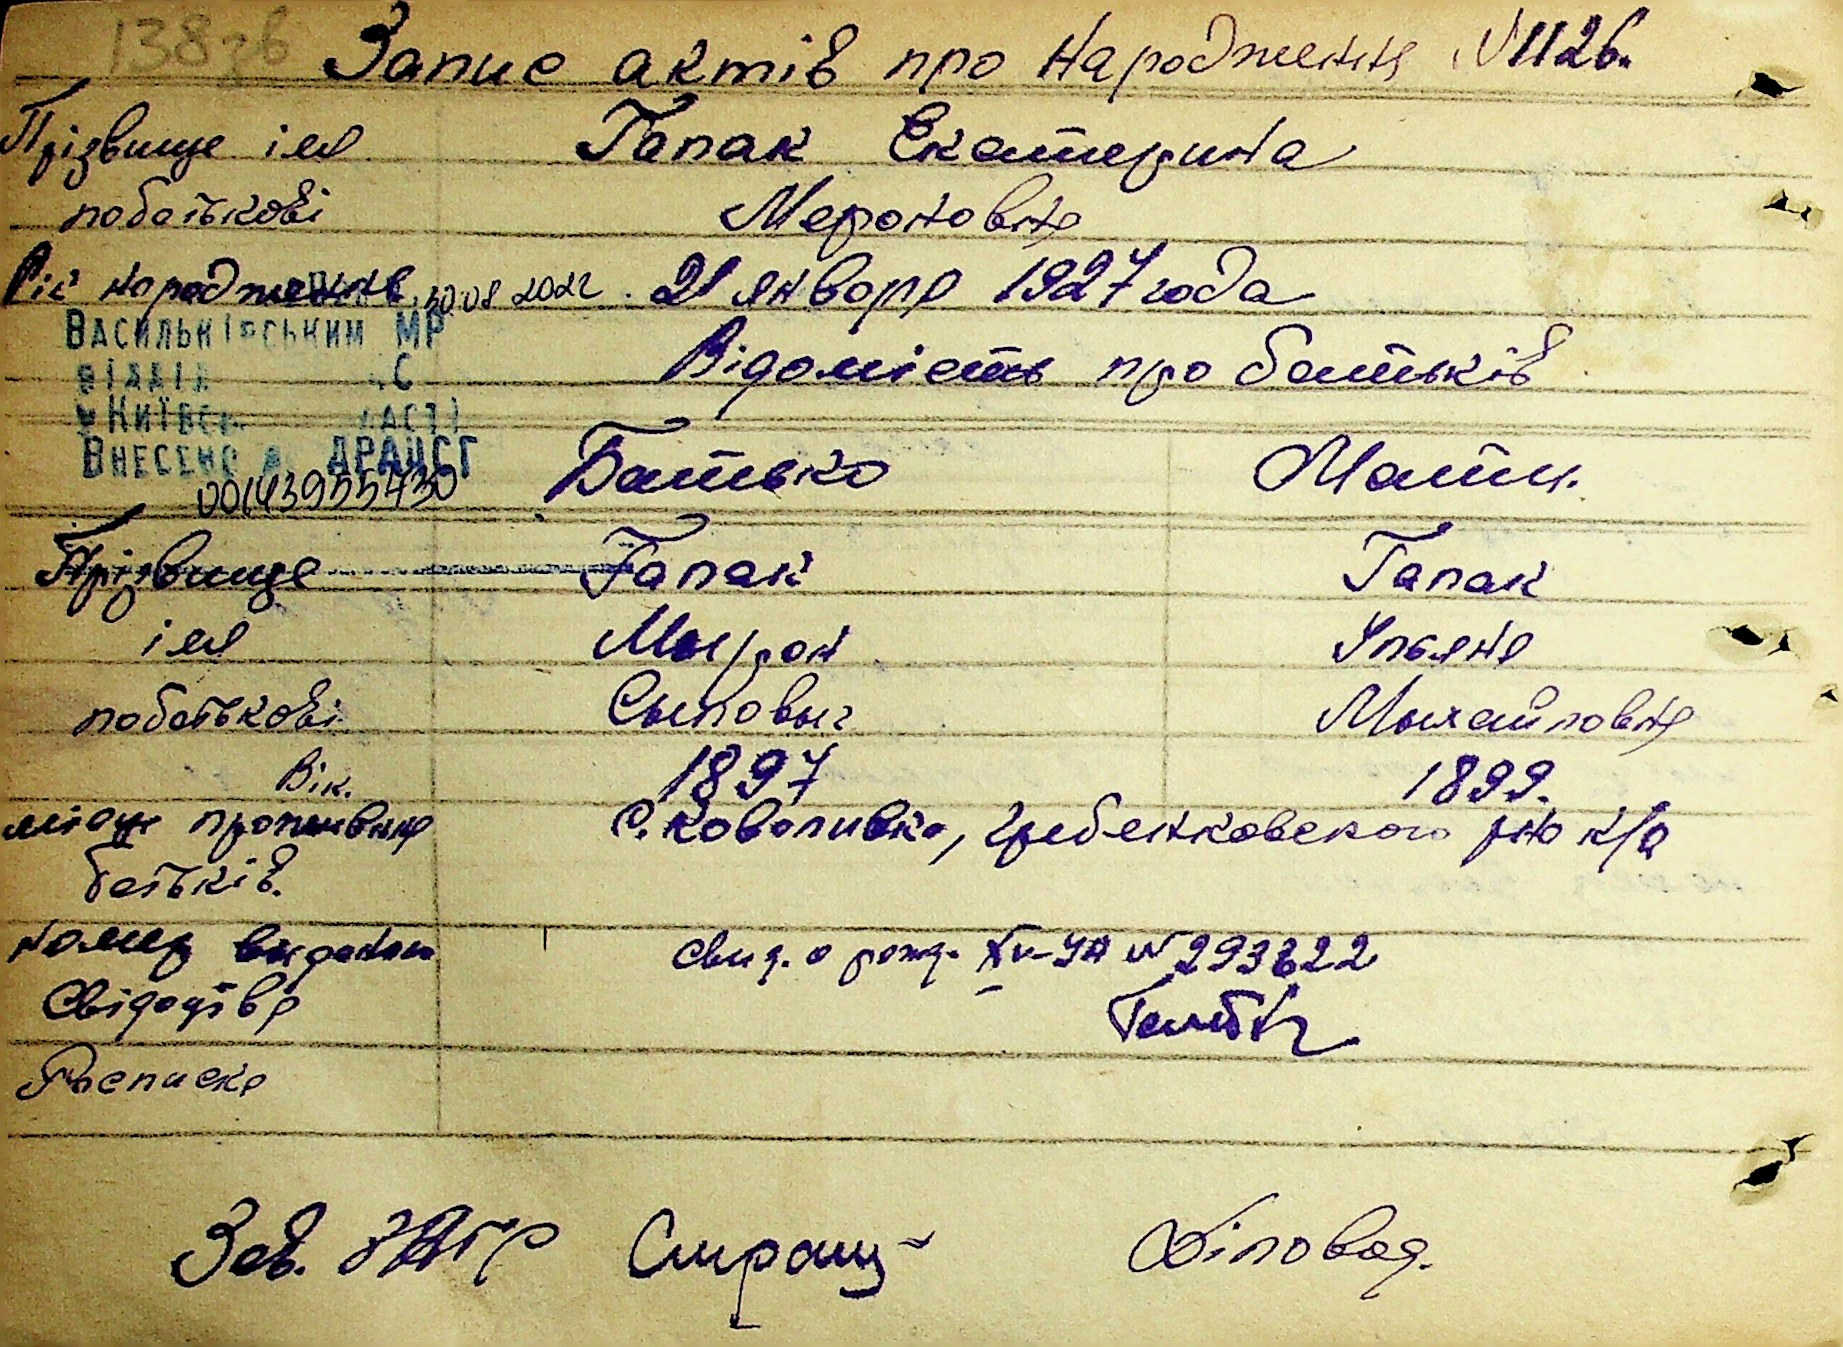 138зв
Запис актів про народження N1126.
Прізвище імя Гапак Екатерина
побатькові Мероновна
Рік народження 30.08 2022 21 января 1927 года
Васильківським МР
відділ С
у Київськ ласті
Внесено д ДРАЦСГ
00143955430
Відомість про батьків
Батько Мати.
Прізвище Гапак Гапак
імя Мырон Ульяна
побатькові Сыловыч Мыхайловна
Вік. 1897 1899.
місце проживання с. Коваливка, Гребенковского рна к/о
батьків.
номер выданого свид. о рожд. XV-УА N 293822
Свідоцтва
Росписка
Зав. ЗАГС Діловод.